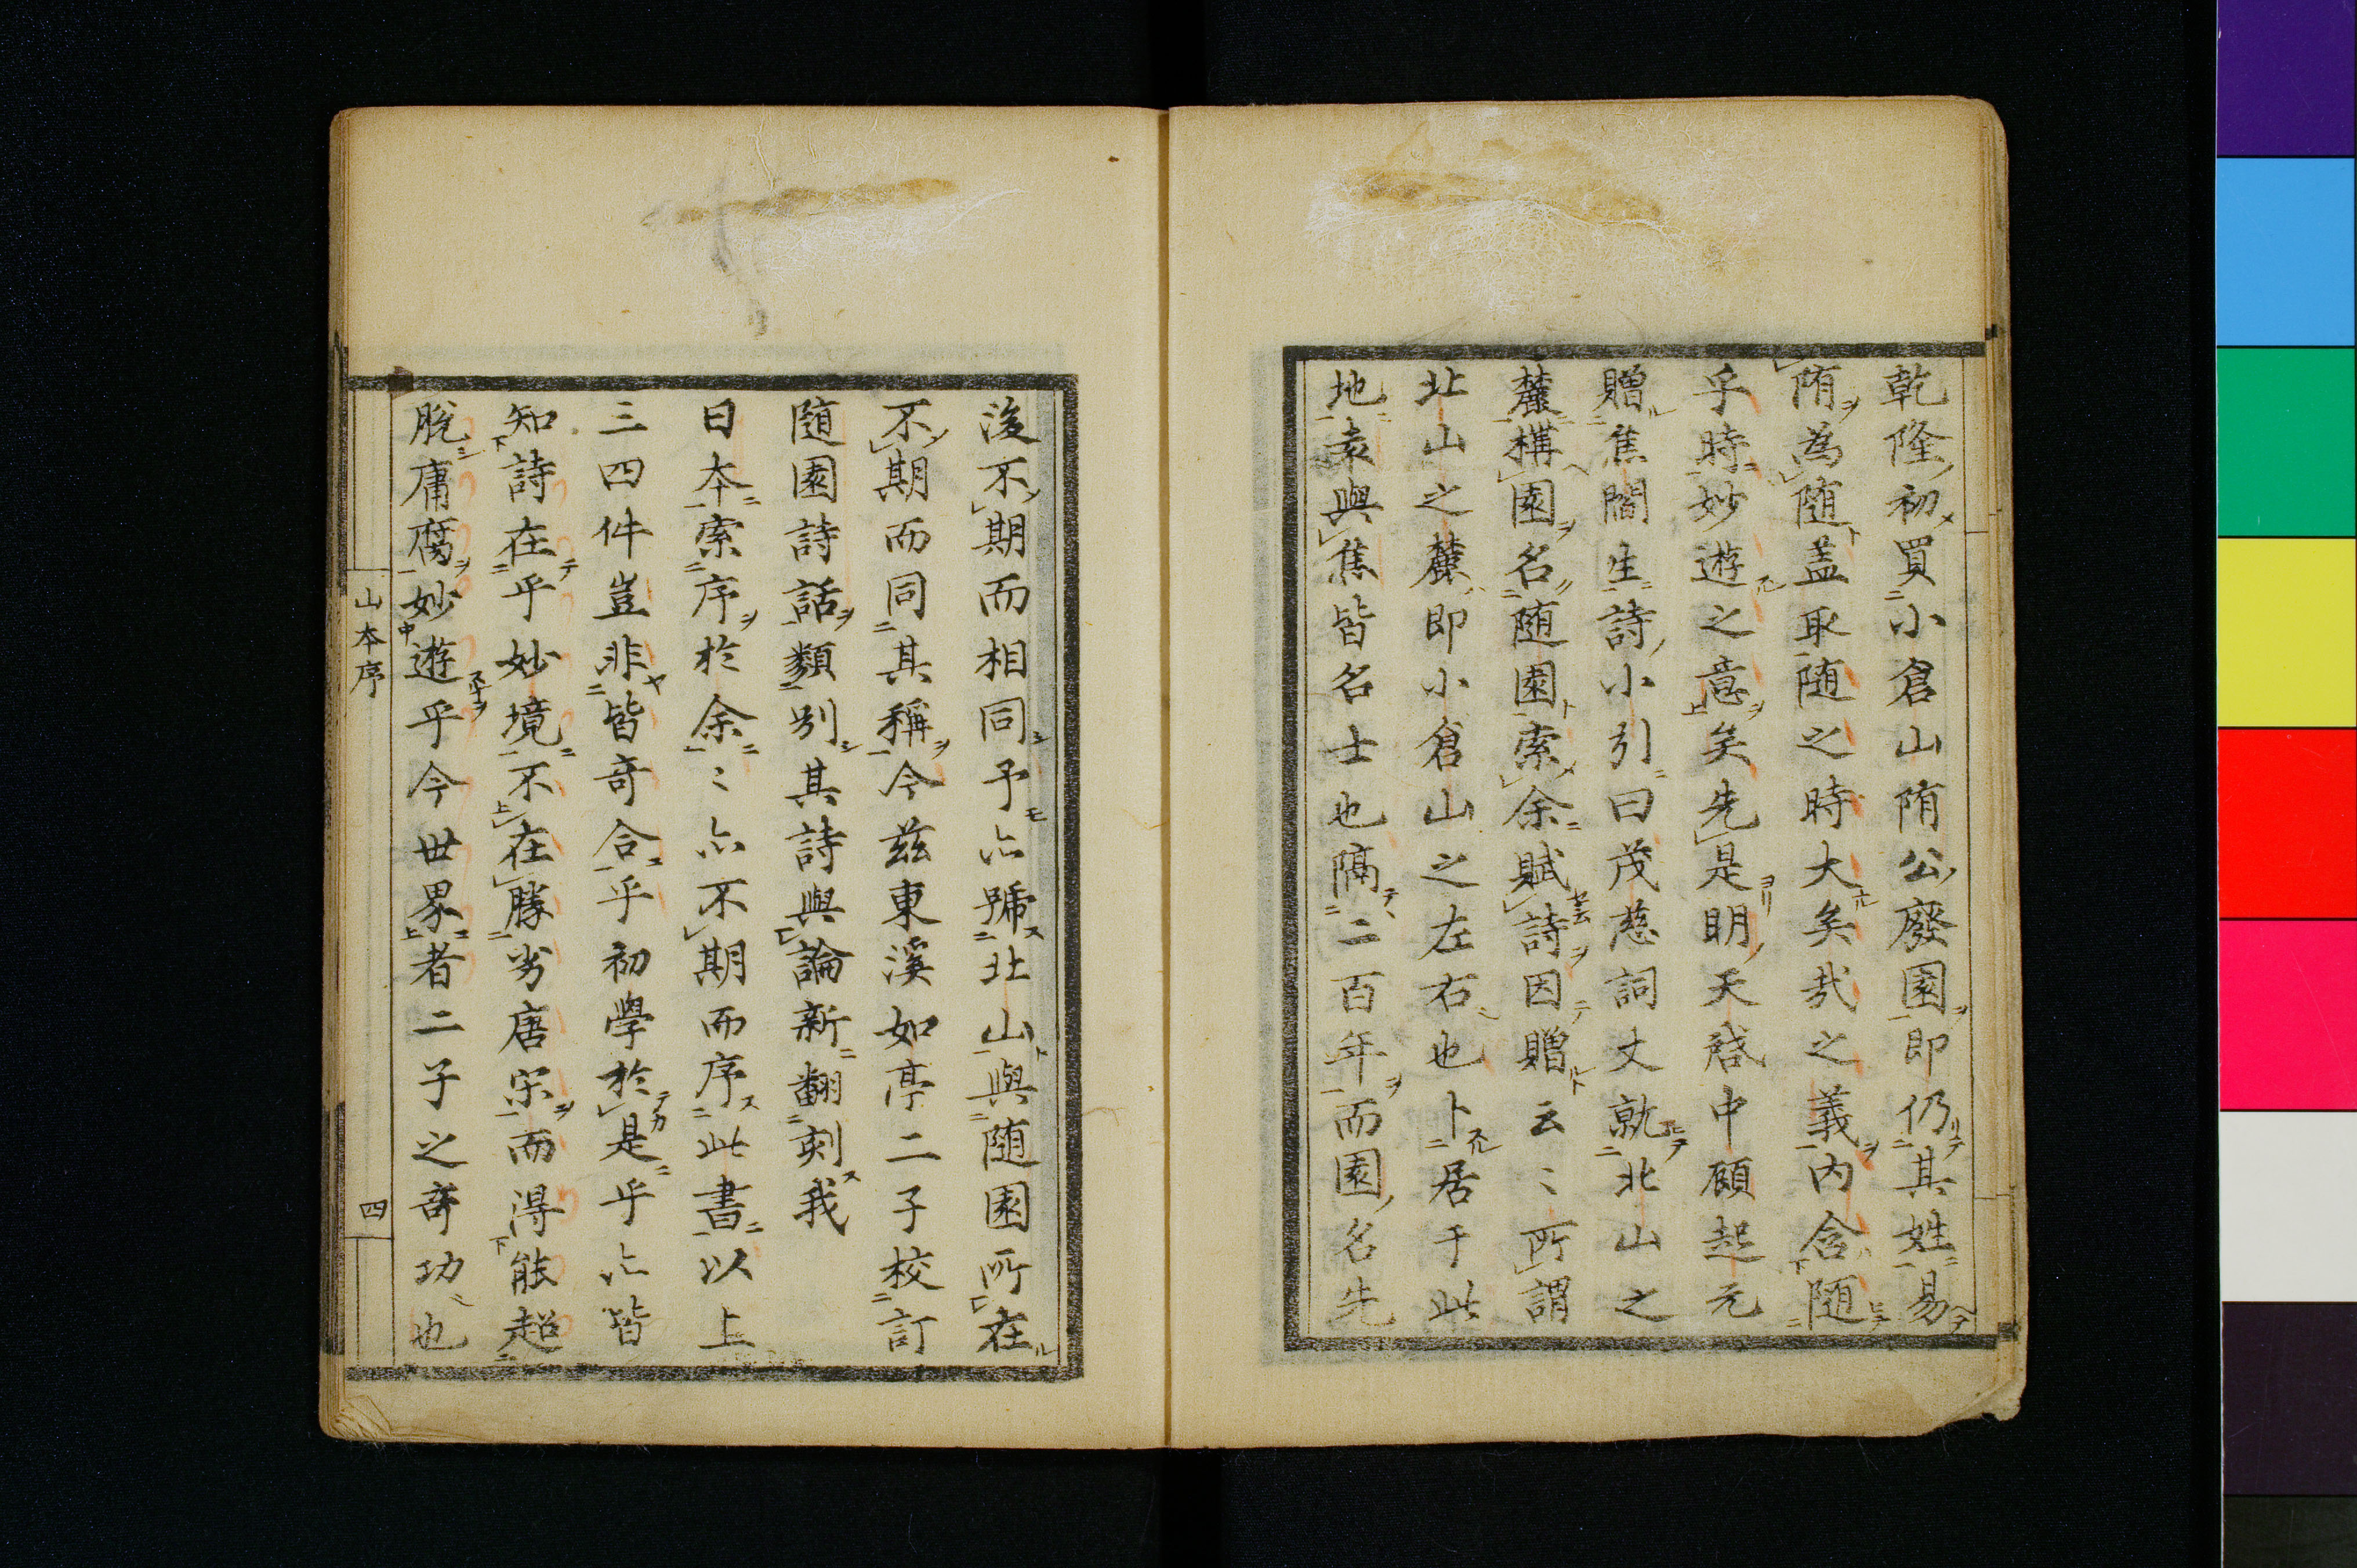 乾隆初買小倉山隋公廢園即仍其姓易
隋為随盖取随之時大矣哉之義内含随
乎時妙遊之意矣先是明天啓中顧起元
贈焦閣生詩小引曰茂慈詞丈就北山之
麓構園名随園索余賦詩因贈云〻所謂
北山之麓即小倉山之左右也卜居于此
地袁與焦皆名士也隔二百年而園名先
後不期而相同予亦號北山與随園所在
不期而同其稱今兹東溪如亭二子校訂
随園詩話類別其詩與論新翻刻我
日本索序於余〻亦不期而序此書以上
三四件豈非皆奇合乎初學於是乎亦皆
知詩在乎妙境不在勝劣唐宋而得能超
脱庸腐妙遊乎今世界者二子之奇功也
山本序
四